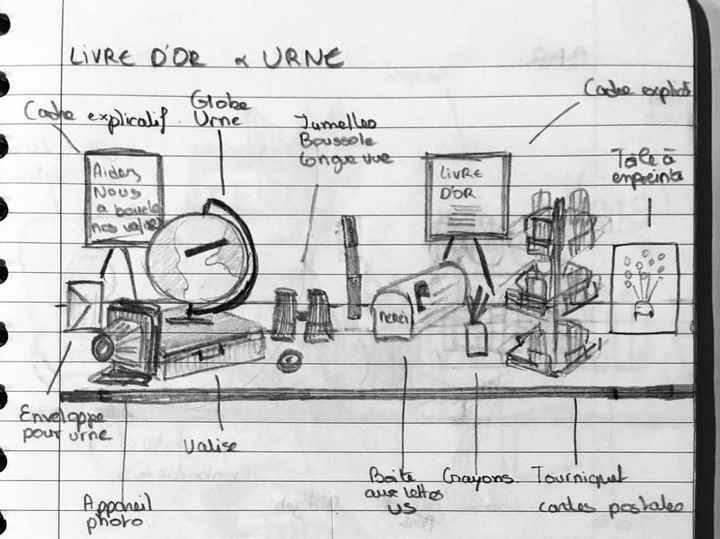 LIVRE D'OR & URNE
Cadre explicatif
Globe
Urne
Jumelles
Boussole
longue vue
Cadre explicatif
Toile à
empreinte
Aidez
Nous
a boucler
nos valises
LIVRE
D'OR
MERCI
Enveloppe
pour urne
Valise
Appareil
photo
Boite
aux lettres
US
Crayons
Tourniquet
cartes postales